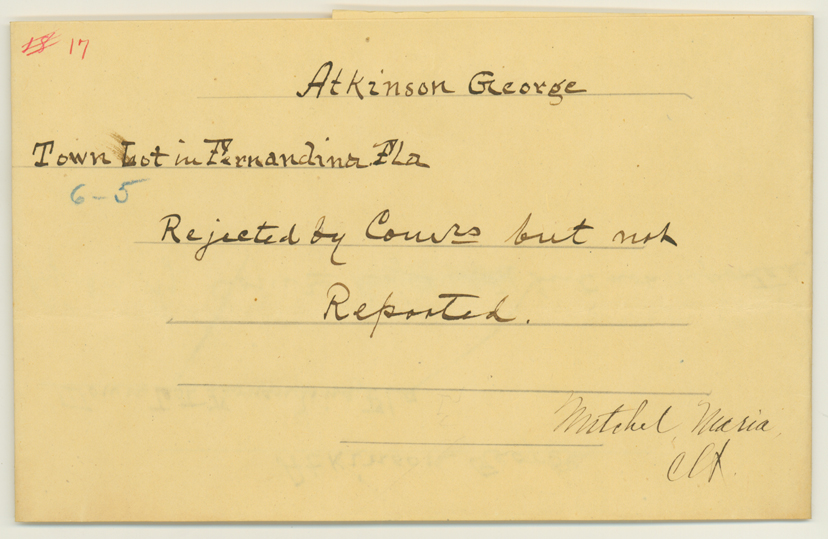 18 17
Atkinson George
Town Lot in Fernandina Fla
6-5
Rejected by Comrs but not
Reported.
Mitchel, Maria,
Clt.